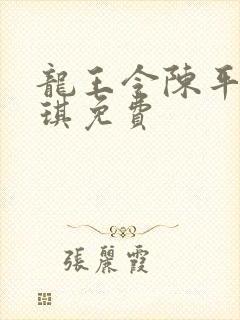 龍王令陳平
琪免費
張麗霞